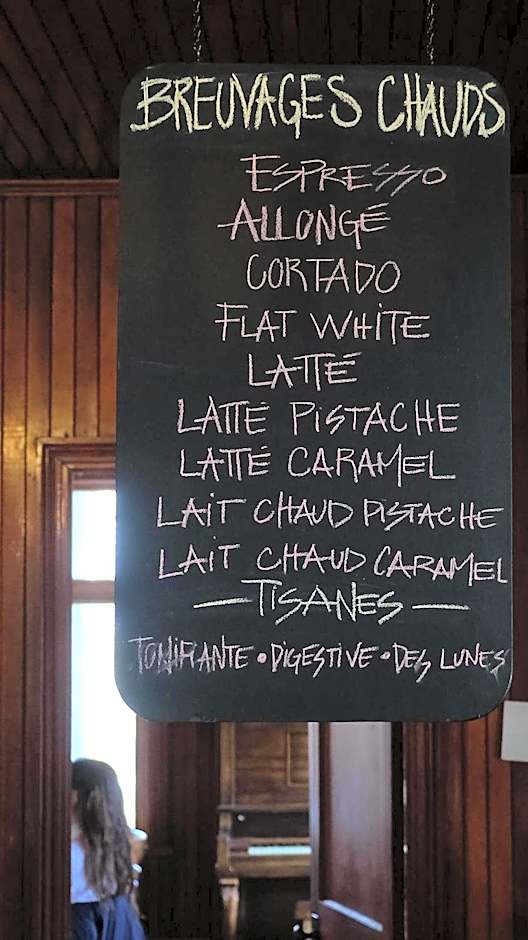 BREUVAGES CHAUDS
ESPRESSO
ALLONGÉ
CORTADO
FLAT WHITE
LATTÉ
LATTÉ PISTACHE
LATTÉ CARAMEL
LAIT CHAUD PISTACHE
LAIT CHAUD CARAMEL
— TISANES —
TONIFIANTE • DIGESTIVE • DES LUNES